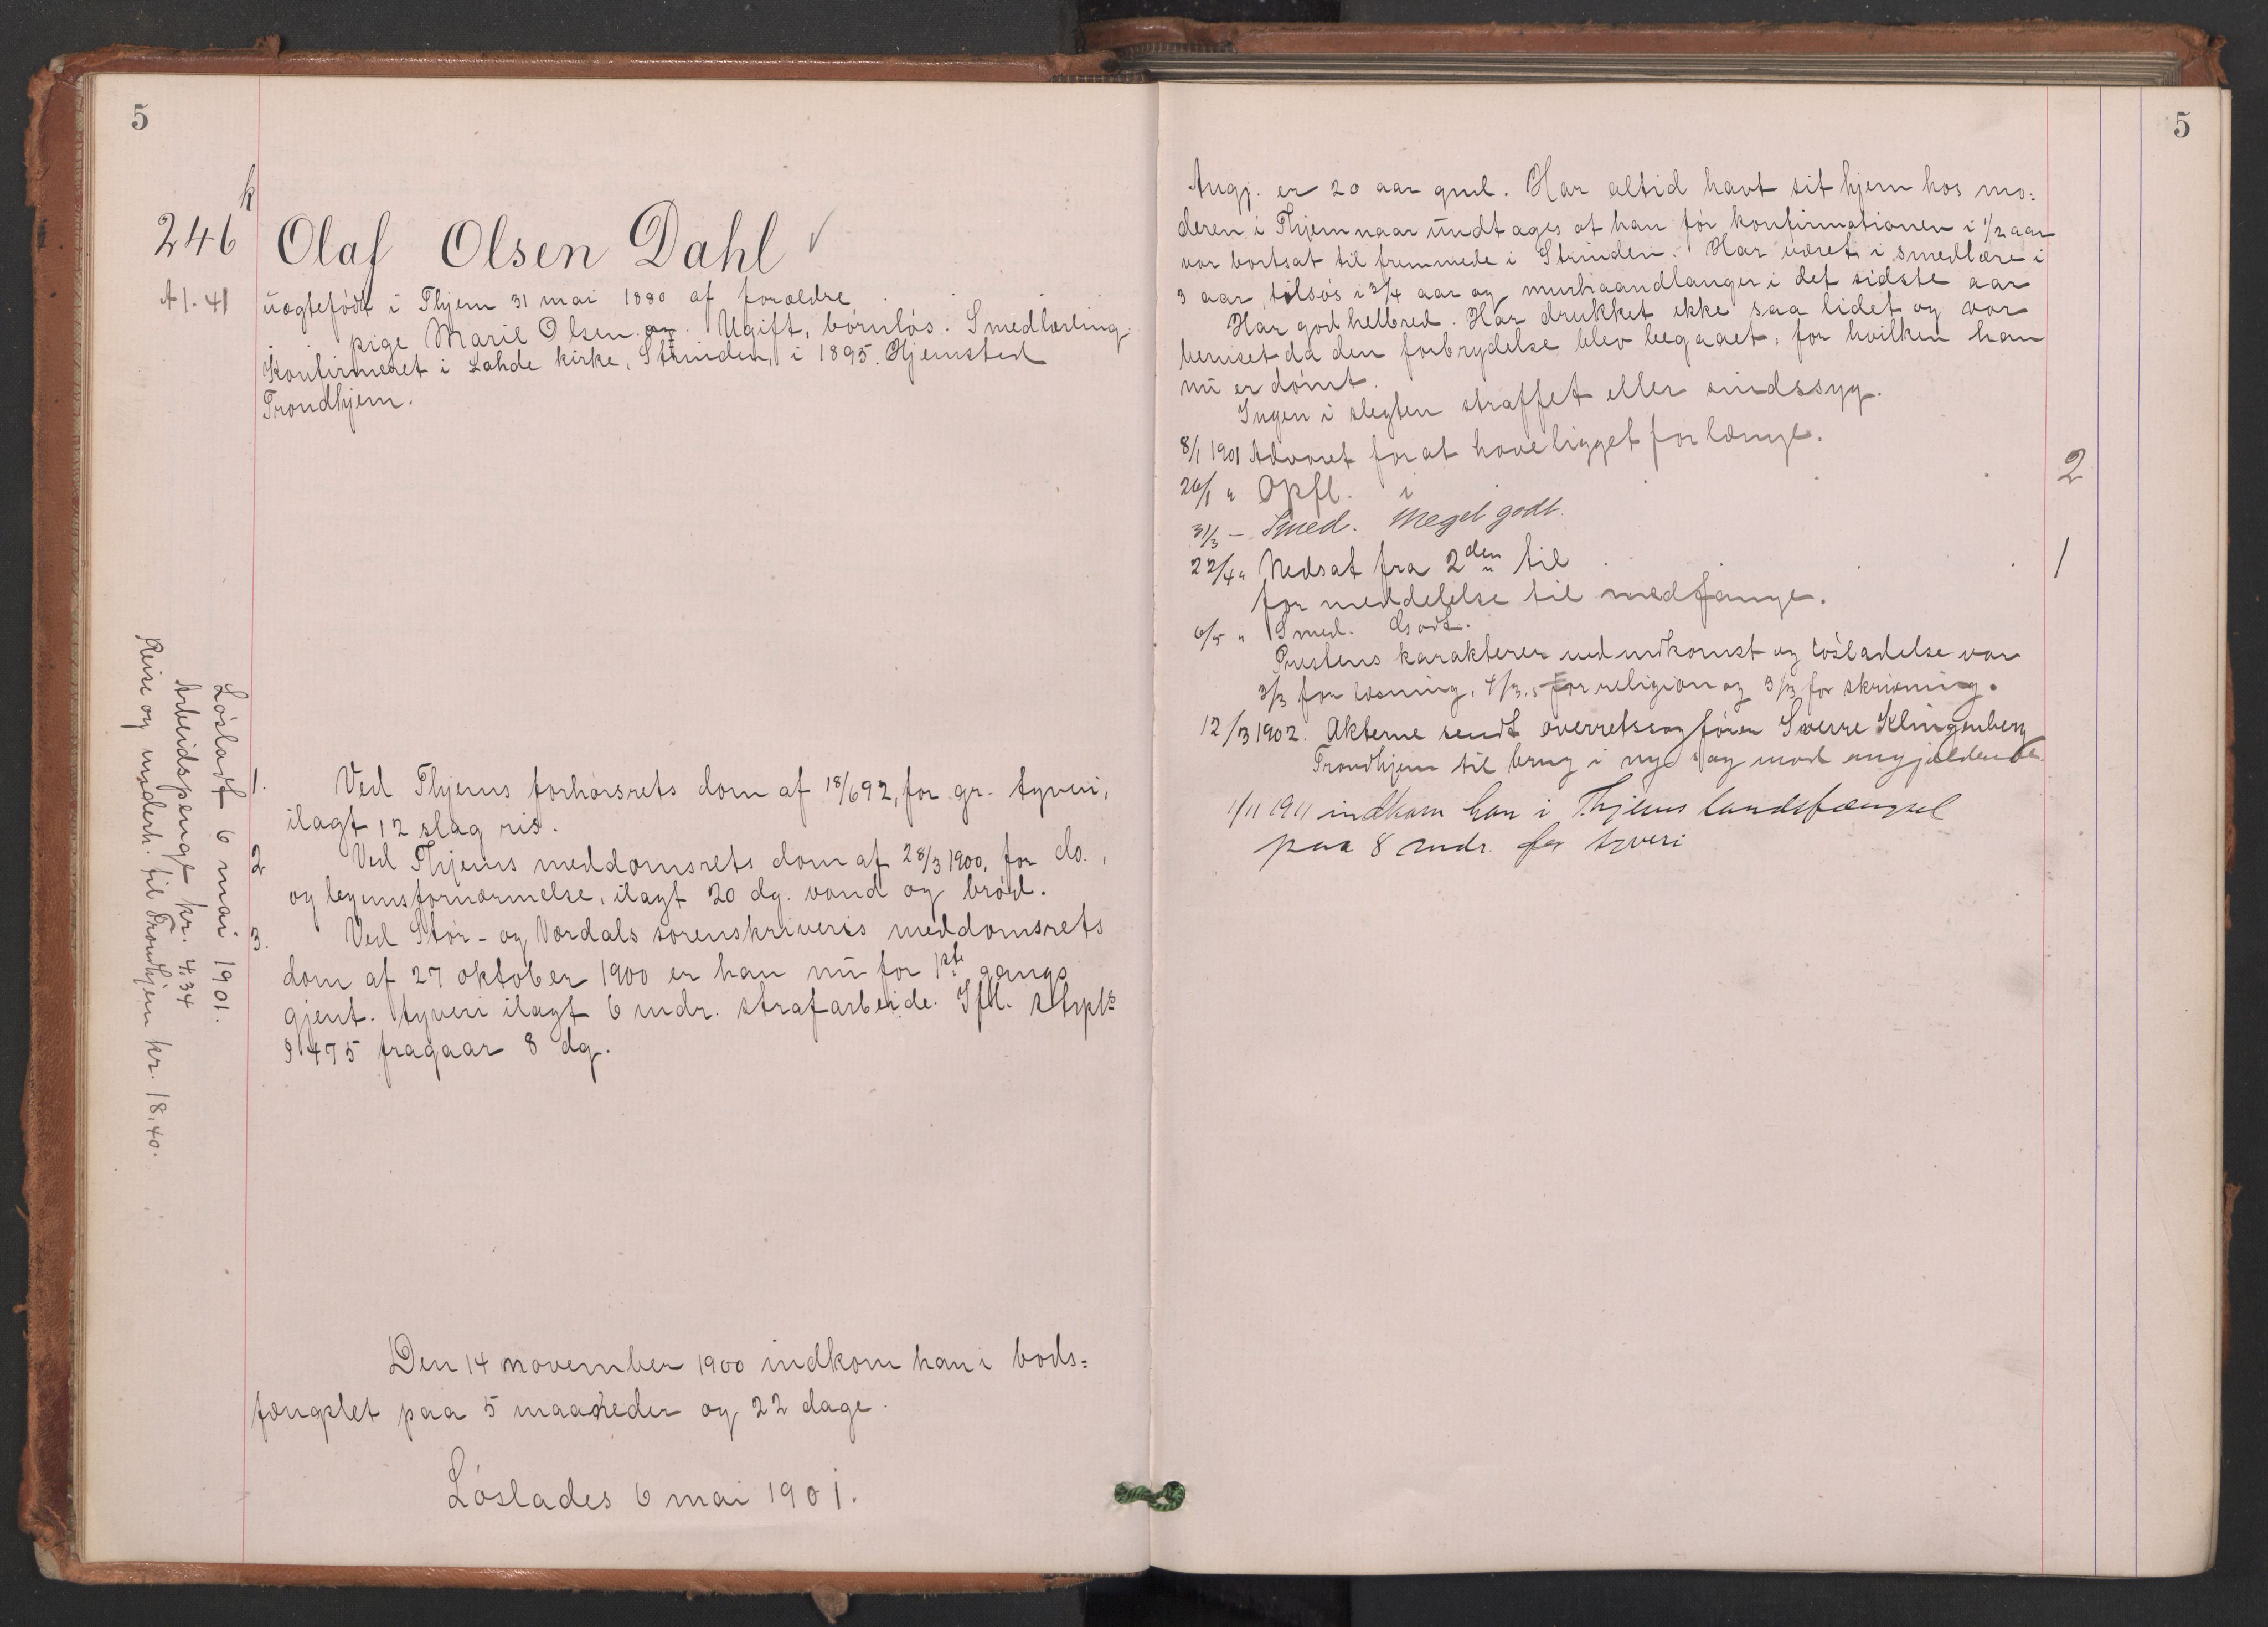 5
k
246 Olaf Olsen Dahl ✓
A 1. 41
uægtefødt i Thjem 31 mai 1880 af forældre
pige Marie Olsen. Ugift, børnløs. Smedlærling.
Konfirmeret i Lahde kirke, Strinden, i 1895. Hjemsted
Trondhjem.
1. Ved Thjems forhørsrets dom af 18/6 92, for gr. tyveri,
ilagt 12 slag ris.
2. Ved Thjems meddomsrets dom af 28/3 1900, for do.,
og legemsfornærmelse, ilagt 20 dg. vand og brød.
3. Ved Stør- og Værdals sorenskriveris meddomsrets
dom af 27 oktober 1900 er han nu for 1ste gangs
gjent. tyveri ilagt 6 mdr. strafarbeide. Iflg. strpl's
§ 475 fragaar 8 dg.
Løsladt 6 mai 1901.
Arbeidspenge kr. 4,34
Reise og underh. til Trondhjem kr. 18,40.
Den 14 november 1900 indkom han i bods=
fængslet paa 5 maaneder og 22 dage.
Løslades 6 mai 1901.
5
Angj. er 20 aar gml. Har altid havt sit hjem hos mo=
deren i Thjem naar undtages at han før konfirmationen i 1/2 aar
var bortsat til fremmede i Strinden. Har været i smedlære i
3 aar, tilsøs i 3/4 aar og murhaandlanger i det sidste aar
Har god helbred. Har drukket ikke saa lidet og var
beruset da den forbrydelse blev begaaet, for hvilken han
nu er dømt.
Ingen i slegten straffet eller sindssyg.
8/1 1901 Advaret for at have ligget for længe.
26/1 " Opfl. i 2
31/3 – Smed. Meget godt.
22/4 " Nedsat fra 2den til 1
for meddelelse til medfange.
6/5 " Smed. Godt.
Prestens karakterer ved indkomst og løsladelse var
3/3 for læsning, 4/3,5 for religion og 3/3 for skrivning.
12/3 1902. Akterne sendt overretssagfører Sverre Klingenberg
Trondhjem til brug i ny sag mod angjældende.
1/11 1911 indkom han i Thjems landsfængsel
paa 8 mdr. for tyveri